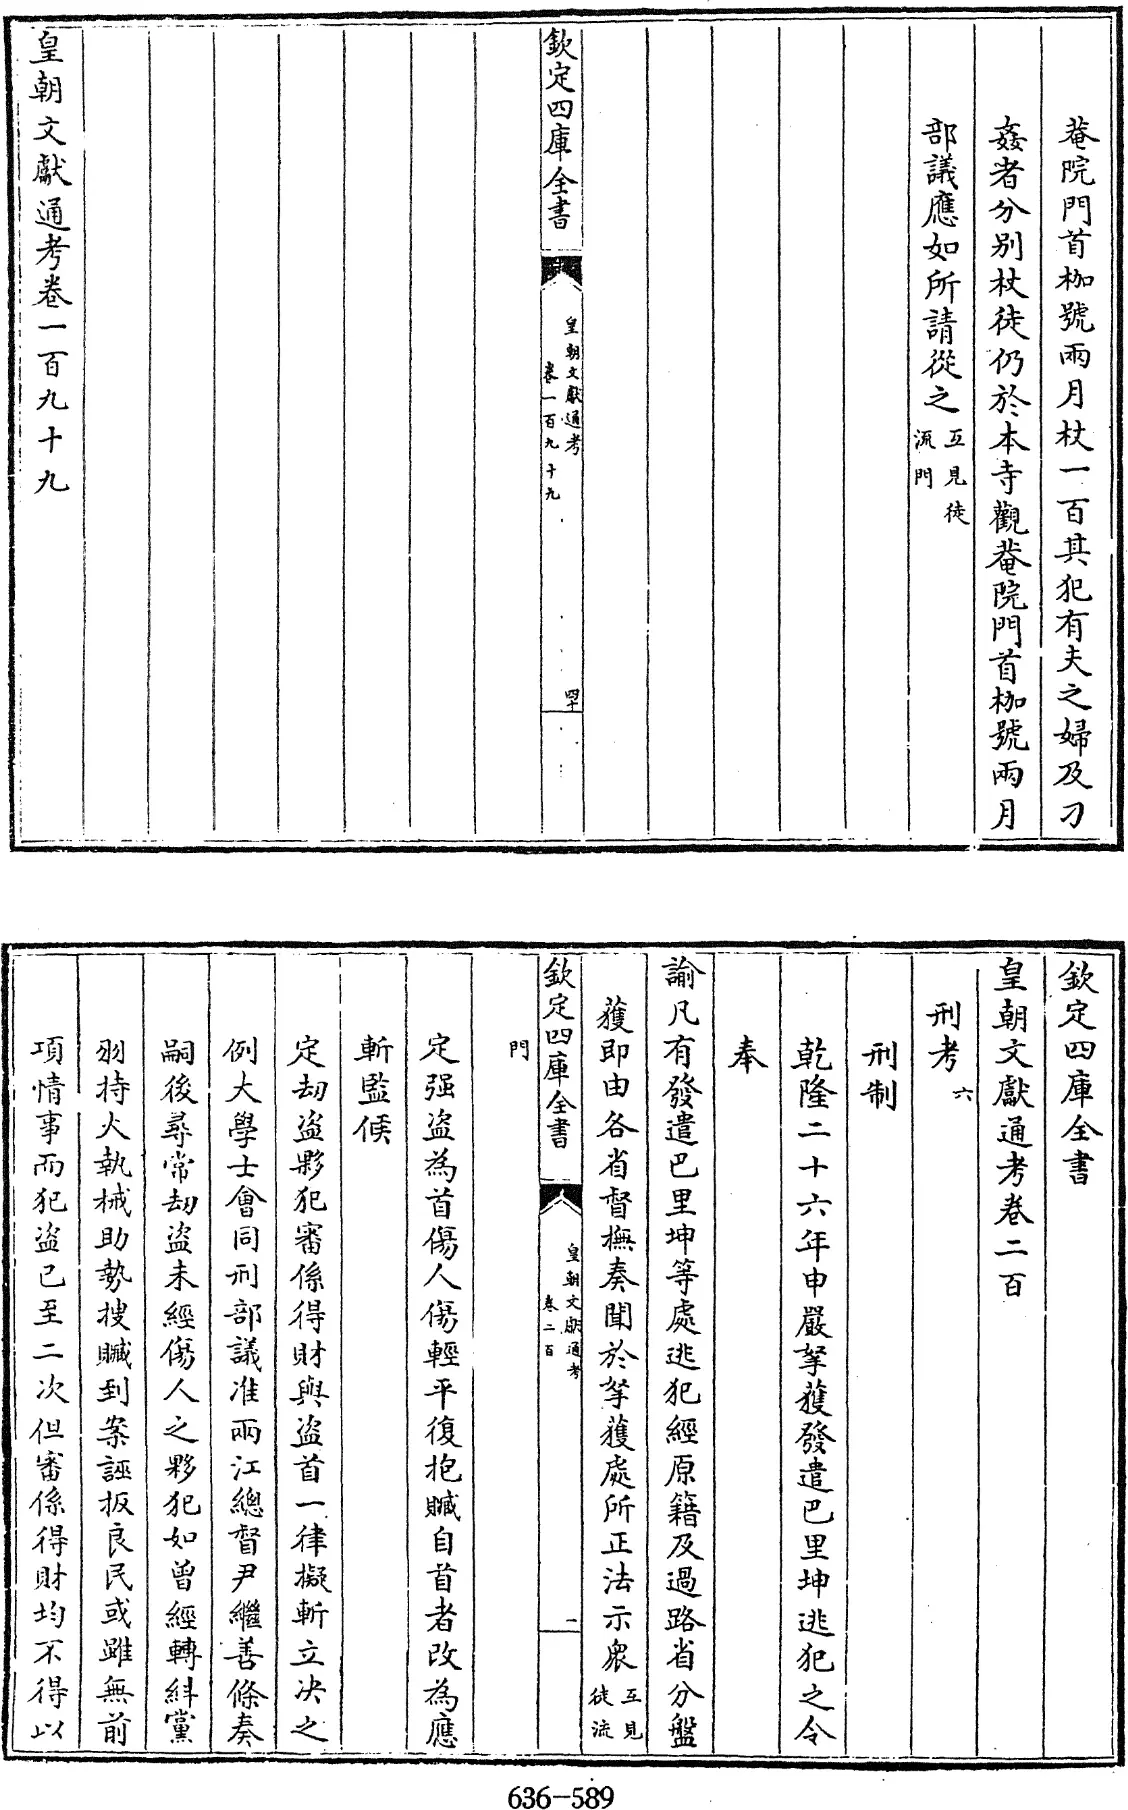 菴院門首枷號兩月杖一百其犯有夫之婦及刁
姦者分別杖徒仍於本寺觀菴院門首枷號兩月
部議應如所請從之互見徒
流門
欽定四庫全書
皇朝文獻通考
卷一百九十九
四十
皇朝文獻通考卷一百九十九
欽定四庫全書
皇朝文獻通考卷二百
刑考六
刑制
乾隆二十六年申嚴拏獲發遣巴里坤逃犯之令
奉
諭凡有發遣巴里坤等處逃犯經原籍及過路省分盤
獲即由各省督撫奏聞於拏獲處所正法示衆互見
徒流
欽定四庫全書
皇朝文獻通考
卷二百
一
門
定强盜為首傷人傷輕平復抱贓自首者改為應
斬監候
定刦盜夥犯審係得財與盜首一律擬斬立决之
例大學士會同刑部議准兩江總督尹繼善條奏
嗣後尋常刦盜未經傷人之夥犯如曾經轉糾黨
羽持火執械助勢搜贓到案誣扳良民或雖無前
項情事而犯盜已至二次但審係得財均不得以
636-589